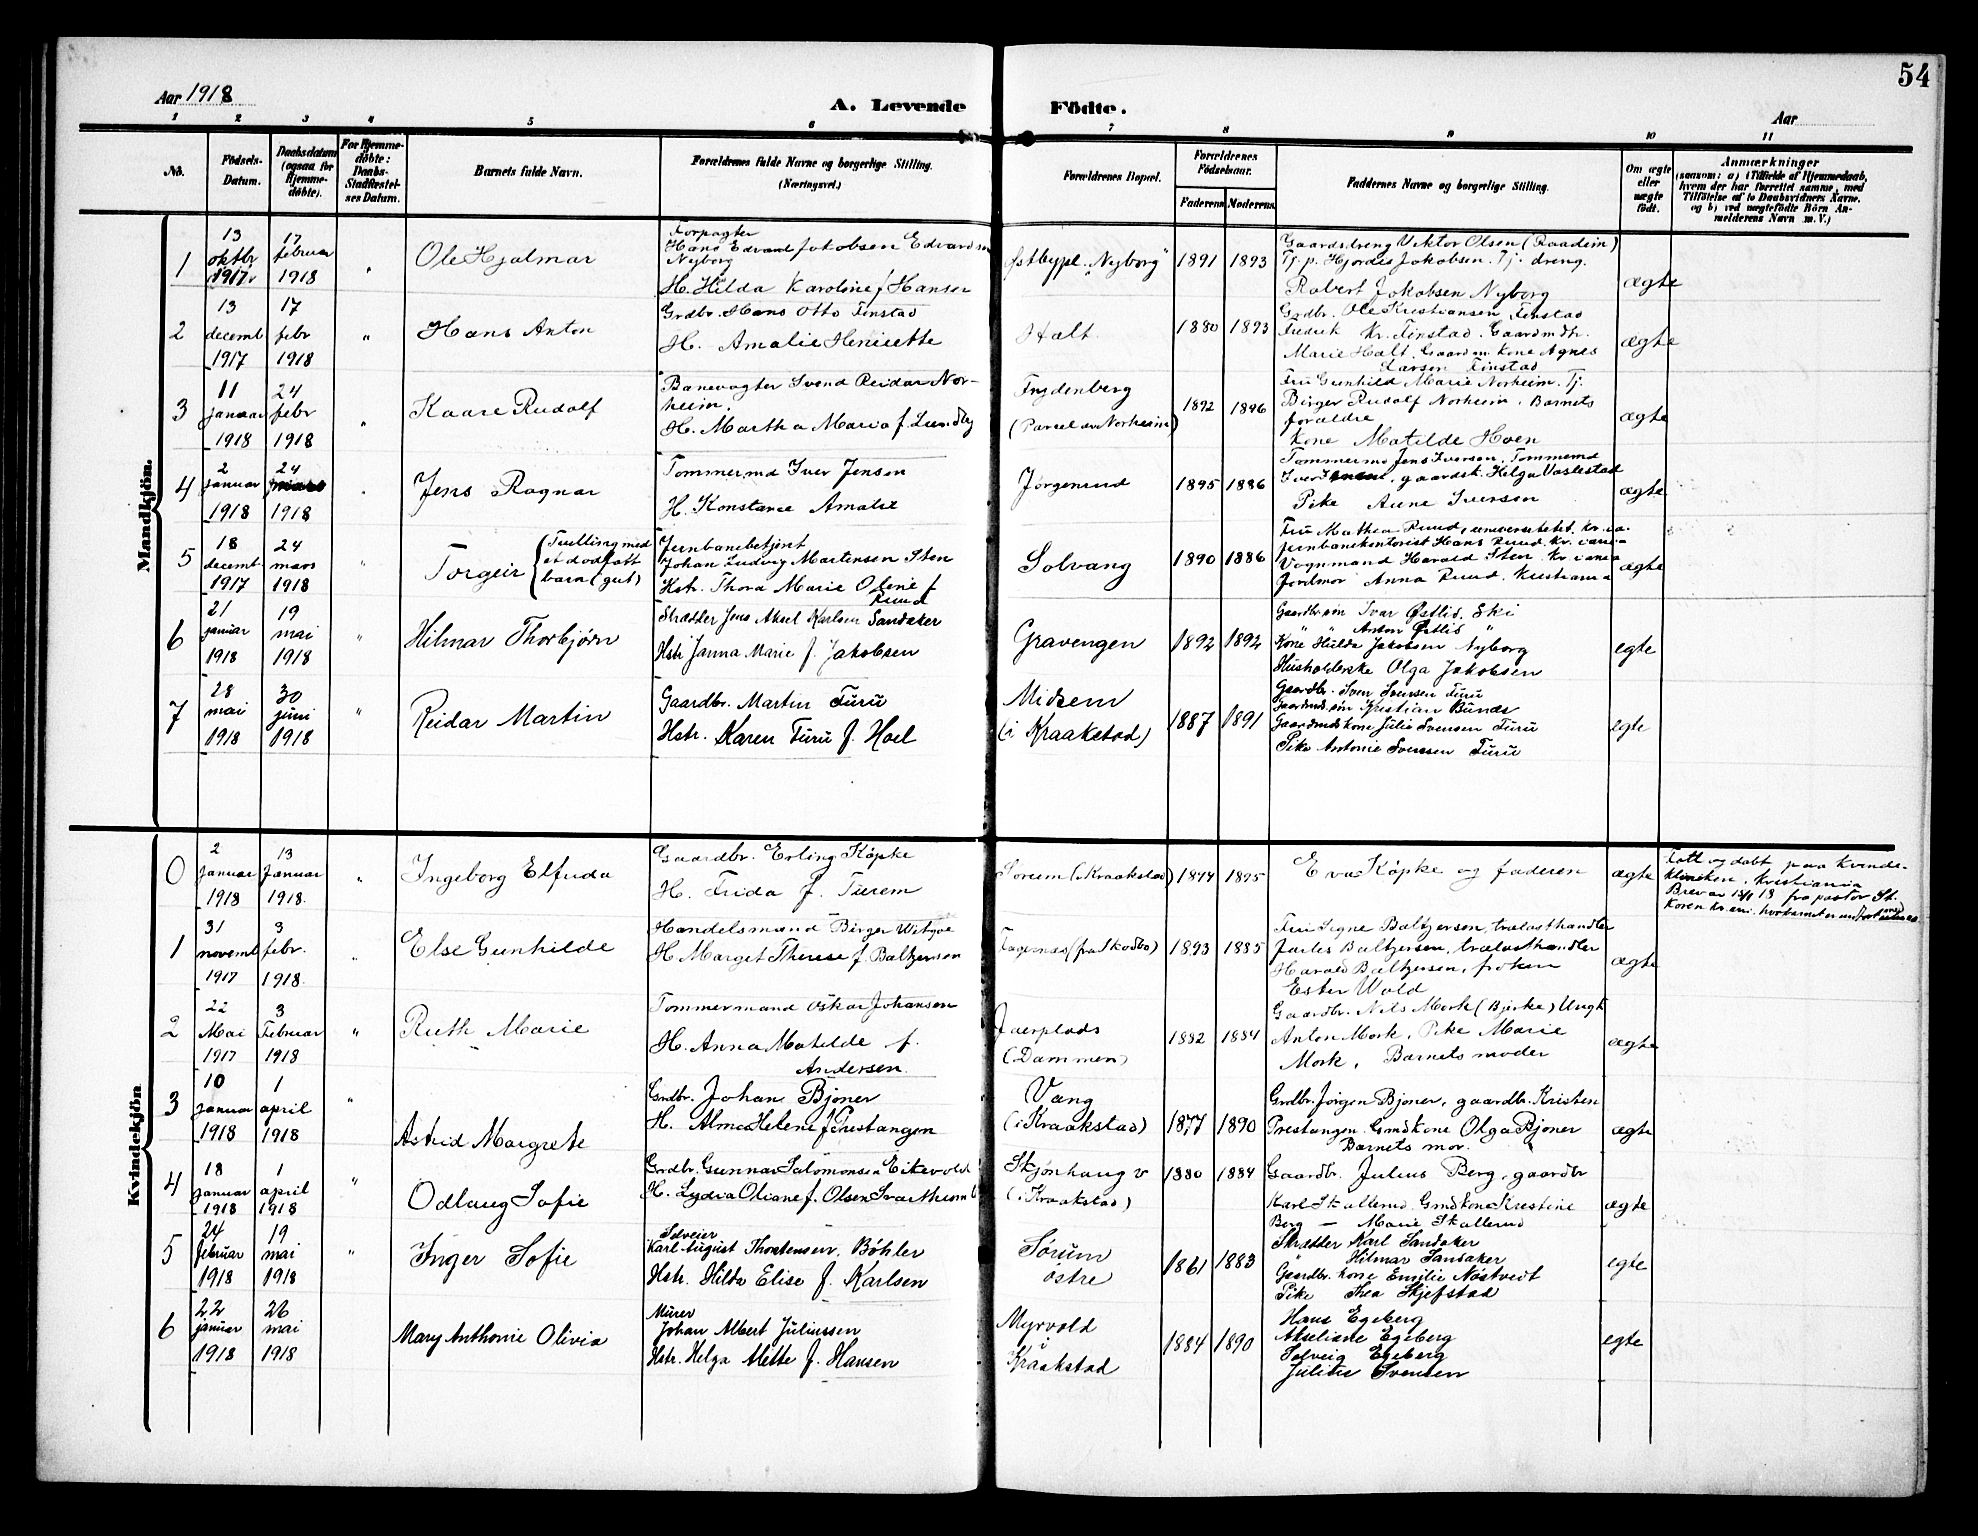 54
Aar 1918
A. Levende Födte.
Aar
1 2 3 4 5 6 7 8 9 10 11
No.
Födsels-Datum.
Daabsdatum (ogsaa for Hjemmedöbte).
For Hjemmedöbte: Daabs-Stadfæstelses Datum.
Barnets fulde Navn.
Forældrenes fulde Navne og borgerlige Stilling.
(Næringsvei.)
Forældrenes Bopæl.
Forældrenes Födselsaar.
Faderens Moderens
Faddernes Navne og borgerlige Stilling.
Om ægte eller uægte födt.
Anmærkninger
(saasom: a) i Tilfælde af Hjemmedaab, hvem der har forrettet samme, med Tilföielse af to Daabsvidners Navne, og b) ved uægtefödte Börn Anmelderens Navn m. V.)
Mandkjön.
1
13 oktbr 1917
17 februar 1918
"
Ole Hjalmar
Forpagter
Hans Edvard Jakobsen Edvardsen
Nyborg
H. Hilda Karoline f Hansen
Østbypl. "Nyborg"
1891 1893
Gaardsdreng Viktor Olsen (Raadim)
Tj. p. Hjordis Jakobsen. Tj. dreng.
Robert Jakobsen Nyborg
ægte
2
13 decemb 1917
17 febr 1918
"
Hans Anton
Grdbr. Hans Otto Finstad
H. Amalie Henriette
Halt
1880 1893
Grdbr. Ole Kristiansen Finstad
Fredrik Kr. Finstad. Gaardmdtr.
Marie Halt. Gaardm. kone Agnes
Larsen Finstad
ægte
3
11 januar 1918
24 febr 1918
"
Kaare Rudolf
Banevogter Svend Reidar Nor-
heim.
H. Martha Maria f. Lundby
Frydenberg
(Parcel av Norheim)
1892 1896
Fru Gunhild Marie Norheim. Tj.
Birger Rudolf Norheim. Barnets
forældre
Kone Matilde Hoen
ægte
4
2 januar 1918
24 1918
"
Jens Ragnar
Tømmermd Iver Jensen
H. Konstance Amalie
Jørgenrud
1895 1886
Tømmermd Jens Iversen, Tømmermd
Iver, gaardsk. Helga Vaslestad
Pike Anne Iversen
ægte
5
18 decemb 1917
24 mars 1918
"
Torgeir
(Tvilling med
et dødføtt
barn (gut)
Jernbanebetjent
Johan Ludvig Martinsen Sten
Hstr. Thora Marie Oline f
Ruud
Solvang
1890 1886
Fru Mathea Ruud, universitetet. Kr.ia.
jernbanekontorist Hans Ruud. Kr.iania
Vognmand Harald Sten. Kr.iania
Jordmor Anna Ruud. Kristiania
ægte
6
21 januar 1918
19 mai 1918
"
Hilmar Thorbjørn
Skrædder Jens Aksel Karlsen Sandaker
Hstr Janna Marie f. Jakobsen
Gravengen
1892 1892
Gaardbr.søn Ivar Østlid, Ski
" Anton Østlid "
Kone Hulda Jakobsen Nyborg
Husholderske Olga Jakobsen
egte
7
28 mai 1918
30 juni 1918
"
Reidar Martin
Gaardbr. Martin Furu
Hstr. Karen Furu f. Hoel
Midsem
(i Kraakstad)
1887 1891
Gaardbr. Sven Svensen Furu
Gaardmds.søn Kristian Bunds
Gaardmds kone Julie Svensen Furu
Pike Antonie Svensen Furu
egte
Kvindekjön
0
2 januar 1918
13 januar 1918.
"
Ingeborg Elfrida
Gaardbr. Erling Köpke
H. Frida f. Furem
Sorum (i Kraakstad)
1895
Eva Köpke og faderen
ægte
Født og døbt paa Kvinde-
kliniken, Kristiania
Brev av 13/1 18 fra pastor St.
1
31 novemb 1917
3 febr. 1918.
"
Else Gunhilde
Handelsmand Birger Witzøe
H Marget Therese f. Baltzersen
Fagernes (fra Skodbo)
1893 1885
Fru Signe Baltzersen, trælasthandler
Jarles Baltzersen, trælasthandler
Harald Baltzersen, frøken
Ester Wold
ægte
2
22 Mai 1917
3 Februar 1918
"
Ruth Marie
Tømmermand Oskar Johansen
H. Anna Matilde f.
Andersen
Jaerplads
(Dammen)
1882 1884
Gaardbr. Nils Mork (Bjerke) Ungk
Anton Mork, Pike Marie
Mork, Barnets moder
ægte
3
10 januar 1918
1 april 1918
"
Astrid Margrete
Grdbr. Johan Bjöner
H. Alma Helene f Prestangen
Vang
(i Kraakstad)
1877 1890
Grdbr. Jörgen Bjöner, gaardbr. Kristen
Prestangen. Gmdkone Olga Bjöner
Barnets mor.
ægte
4
18 januar 1918
1 april 1918
"
Odlaug Sofie
Grdbr. Gunnar Salomonsen Eikevold
H. Lydia Oliane f. Olsen
Skjønhaug v
(i Kraakstad)
1880 1884
Gaardbr. Julius Berg, gaardbr
Karl Skallerud. Gmdkone Kristine
Berg — Marie Skallerud
ægte
5
24 februar 1918
19 mai 1918
"
Inger Sofie
Selveier
Karl August Thorstensen. Böhler
Hstr. Hilda Elise f. Karlsen
Sörum
östre
1861 1883
Skrædder Karl Sandaker
" Hilmar Sandaker
Gaardbr. kone Emilie Nöstvedt
Pike Thea Skjefstad
egte
6
22 januar 1918
26 mai 1918
Mary Anthonie Olivia
Murer
Johan Albert Juliussen
Hstr. Helga Mette f. Hansen
Myrvold
i
Kraakstad
1884 1890
Hans Egeberg
Akseliane Egeberg
Solveig Egeberg
Julitte Svensen
egte